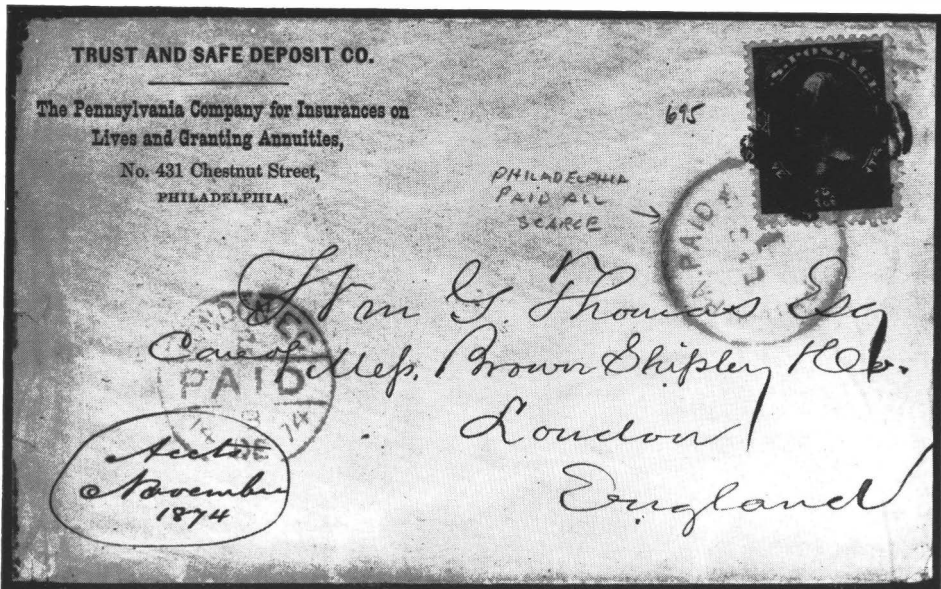 TRUST AND SAFE DEPOSIT CO.
The Pennsylvania Company for Insurances on
Lives and Granting Annuities,
No. 431 Chestnut Street,
PHILADELPHIA.
695
PHILADELPHIA
PAID ALL
SCARCE
POSTAGE
PAID
Wm G. Thomas Esq
Care of Mess. Brown Shipley & Co.
London
England
LONDON EC
PAID
14 DE 74
Accts
November
1874